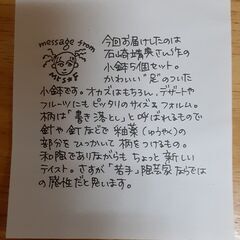 message from
今回お届けしたのは
石崎靖典さん作の
小鉢5個セット。
かわいい"足"のついた
小鉢です。オカズはもちろん、デザートや
フルーツにもピッタリのサイズ&フォルム。
柄は「書き落とし」と呼ばれるもので
針や釘などで釉薬(ゆうやく)の
部分をひっかいて柄をつけるもの。
和陶でありながらもちょっと新しい
テイスト。さすが「若手」陶芸家ならでは
の感性だと思います。